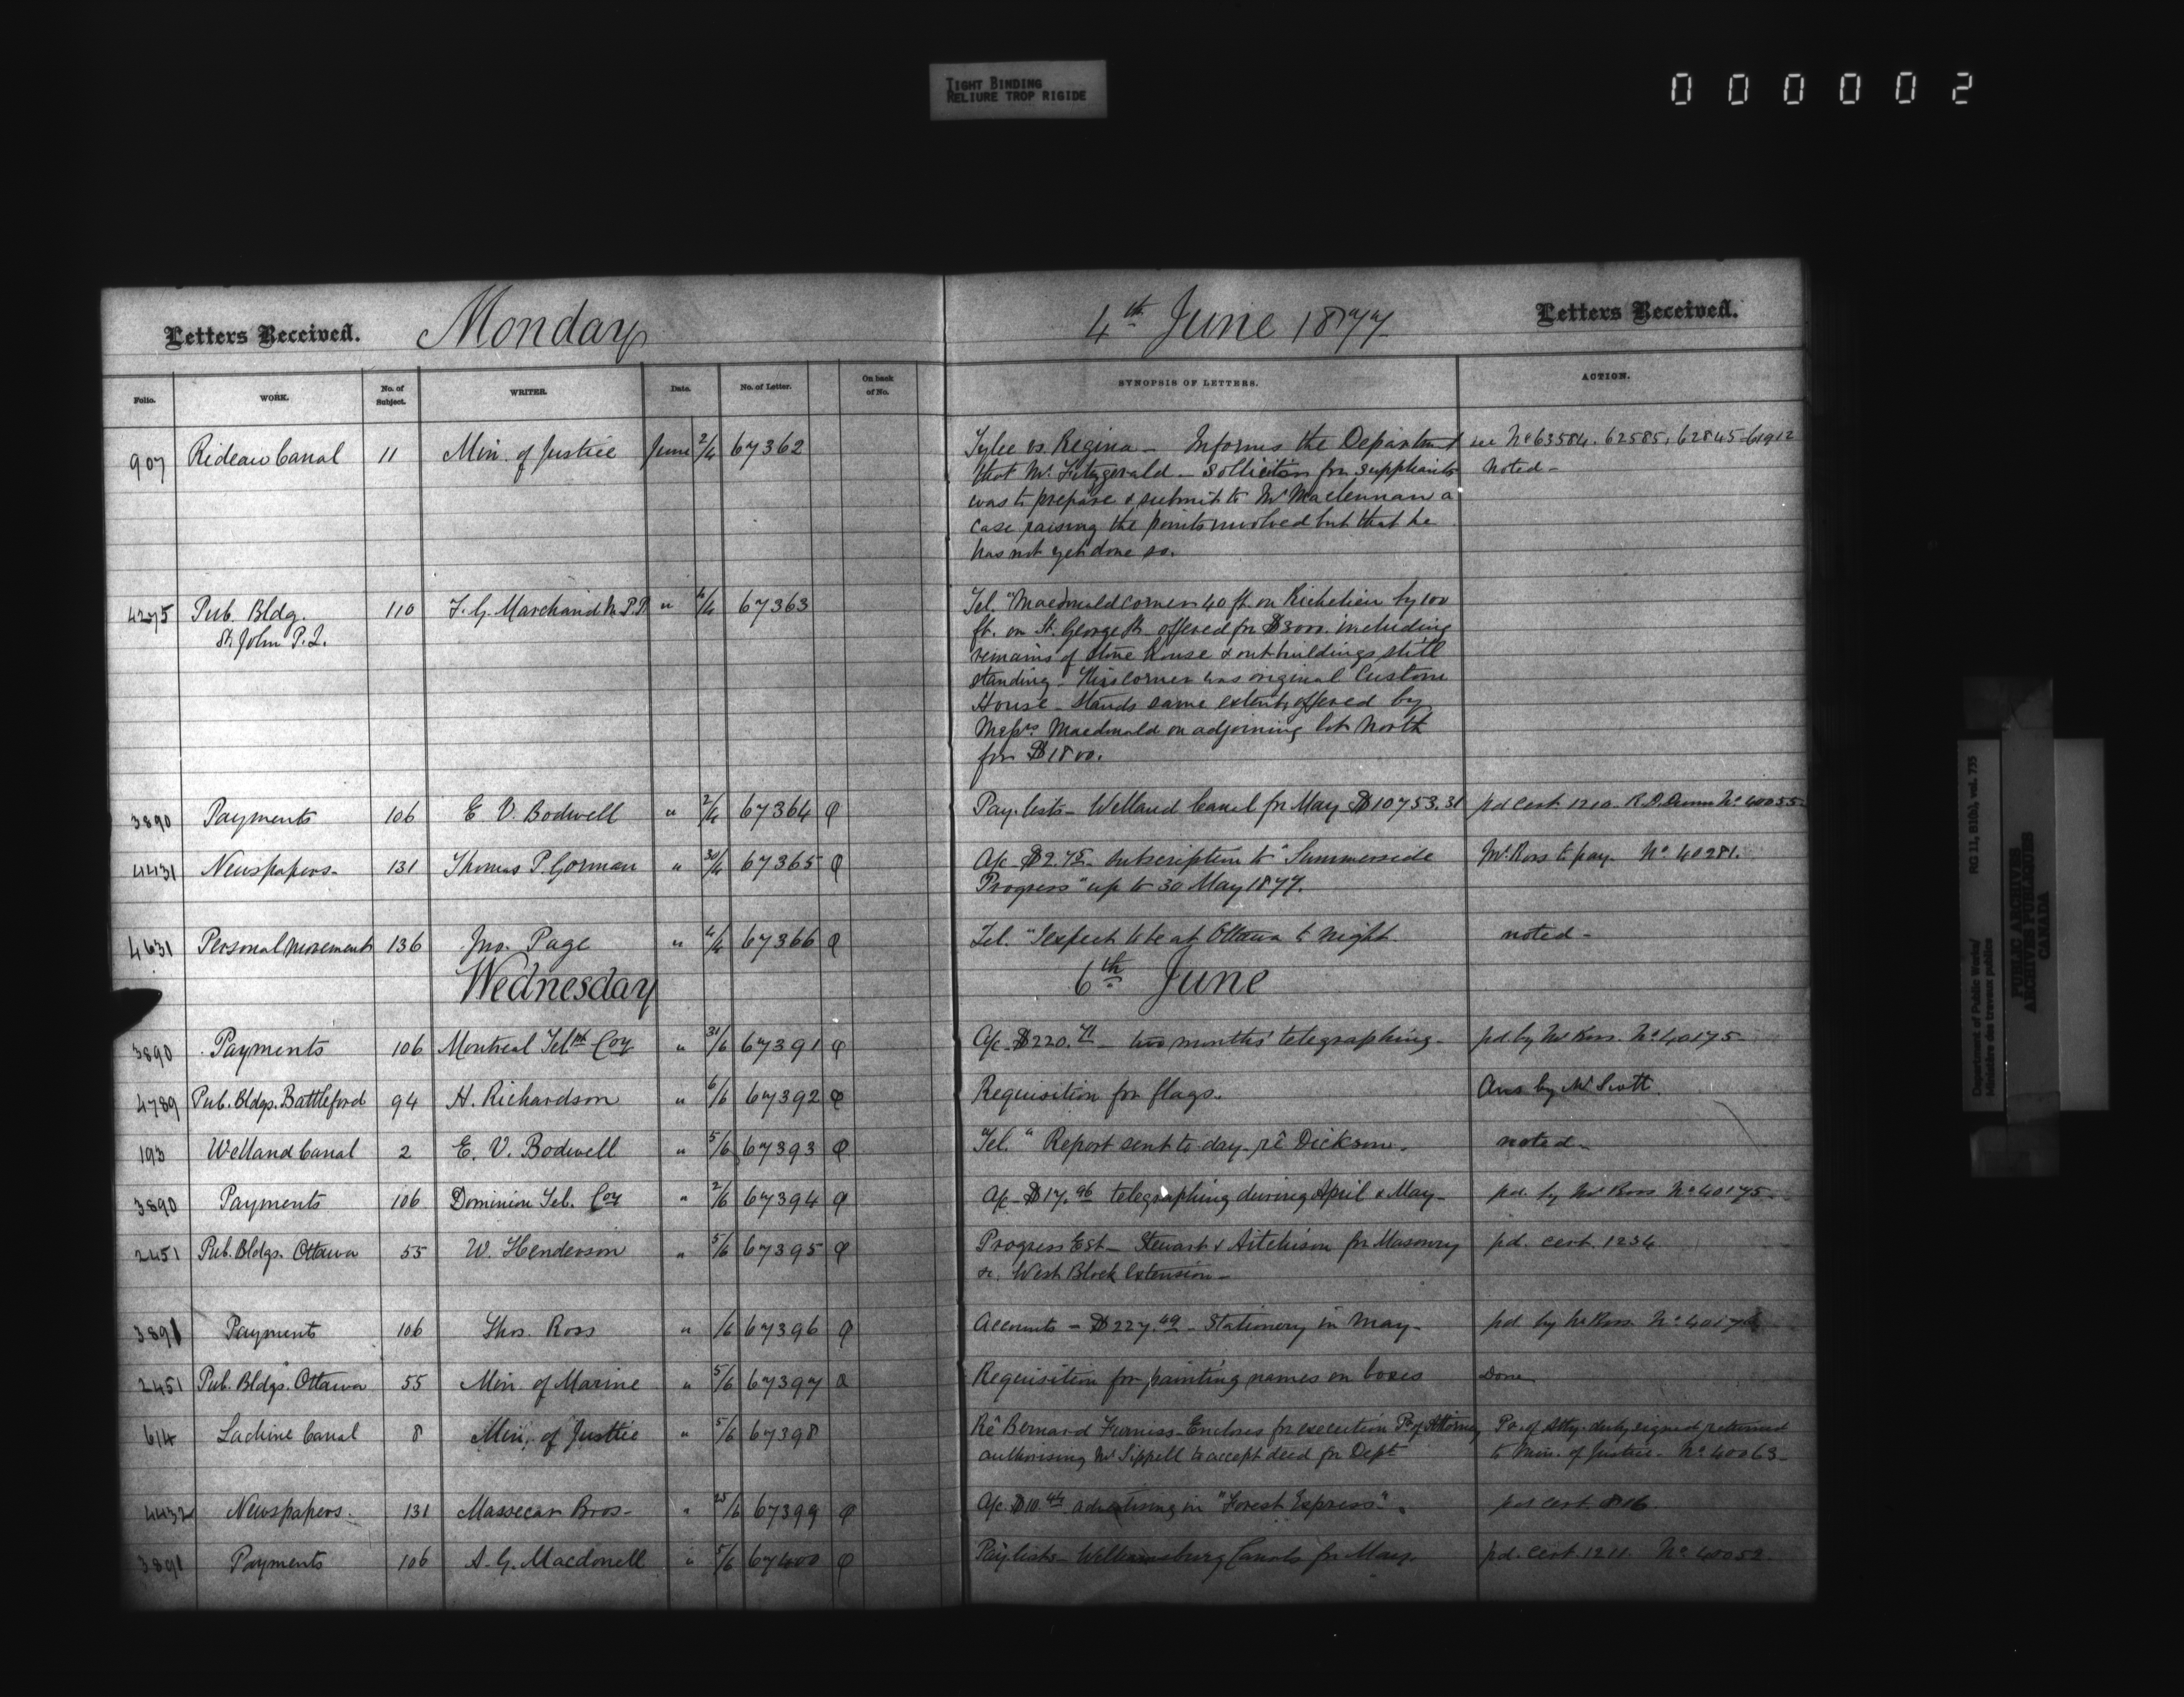 TIGHT BINDING
RELIURE TROP RIGIDE
000002
Letters Received. Monday 4th June 1877 Letters Received.
Folio. WORK. No. of Subject. WRITER. Date. No. of Letter. On back of No. SYNOPSIS OF LETTERS. ACTION.
907 Rideau Canal 11 Min. of Justice June 2/4 67362 Tylee vs. Regina - Informs the Department see No 63584. 62585. 62845
that Mr. Fitzgerald - Sollicitor for suppliants noted -
was to prepare & submit to Mr Maclennan a
case raising the points involved but that he
has not yet done so.
4275 Pub. Bldg. 110 F. G. Marchand M.P.P. " 4/4 67363 Tel. "Macdonald corner 40 ft. on Richelieu by 100
St. John P.Q. ft. on St. George St. offered for $3000. including
remains of stone house & outbuildings still
standing - This corner was original Custom
House - Stands same extent offered by
Messrs Macdonald on adjoining lot North
for $1800.
3890 Payments 106 E. V. Bodwell " 2/4 67364 φ Pay-lists - Welland Canal for May $10753.31 pd cert. 1210. R.D. Dunn No 40055
4431 Newspapers - 131 Thomas P. Gorman " 30/4 67365 φ A/c $2.75 subscription to "Summerside Mr. Ross to pay. No 40281.
Progress" up to 30 May 1877.
4631 Personal Movements 136 Jno. Page " 4/4 67366 φ Tel. "I expect to be at Ottawa to night noted -
Wednesday 6th June
3890 Payments 106 Montreal Telph Coy " 31/6 67391 φ A/c $220.71 - two months' telegraphing - pd. by Mr Ross. No 40175
4789 Pub. Bldgs. Battleford 94 H. Richardson " 6/6 67392 φ Requisition for flags. Ans. by Mr Scott.
193 Welland Canal 2 E. V. Bodwell " 5/6 67393 φ Tel. " Report sent to day - rê Dickson. noted -
3890 Payments 106 Dominion Tel. Coy " 2/6 67394 φ A/c $17.96 telegraphing during April & May - pd. by Mr Ross No 40175 -
2451 Pub. Bldgs. Ottawa 55 W. Henderson " 5/6 67395 φ Progress Est - Stewart & Aitchison for Masonry pd. cert. 1234
&c. West Block Extension -
3891 Payments 106 Thos. Ross " /6 67396 φ Accounts - $227.49 - Stationery in May - pd. by Mr Ross. No
2451 Pub. Bldgs. Ottawa 55 Min. of Marine " 5/6 67397 a Requisition for painting names on boxes Done
614 Lachine Canal 8 Min. of Justice " 5/6 67398 Rê Bernard Furniss - Encloses for execution P. of Attorney Po. of Atty. duly signed returned
authorising Mr Sippell to accept deed for Dept. to Min. of Justice - No 40063 -
4432 Newspapers. 131 Massecar Bros - " 25/6 67399 φ A/c $10.44 advertising in "Forest Express". per cert. 816
3891 Payments 106 A. G. Macdonell " 5/6 67400 φ Paylists - Williamsburg Canals for May. pd. Cert. 1211. No 40052.
Department of Public Works/
Ministère des travaux publics
RG 11, B1(b), vol. 735
PUBLIC ARCHIVES
ARCHIVES PUBLIQUES
CANADA